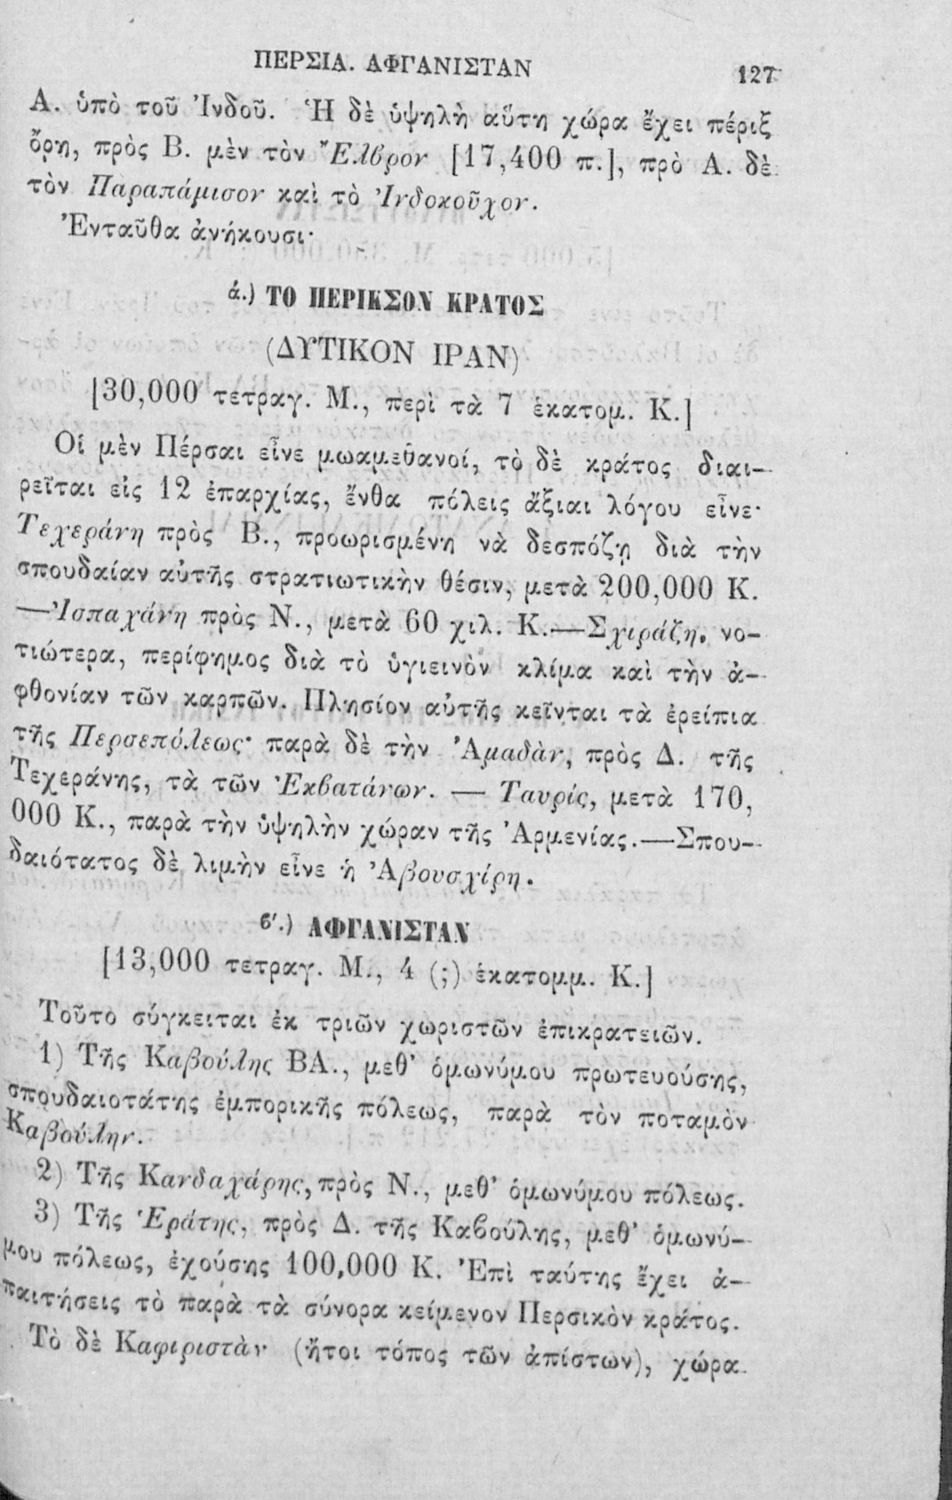 ΠΕΡΣΙΑ. ΑΦΓΑΝΙΣΤΑΝ 127
Α. ὑπὸ τοῦ Ἰνδοῦ. Ἡ δὲ ὑψηλὴ αὕτη χώρα ἔχει πέριξ
ὄρη, πρὸς Β. μὲν τὸν Ἔλβρον [17,400 π.], πρὸ Α. δὲ
τὸν Παραπάμισον καὶ τὸ Ἰνδοκοῦχον.
Ἐνταῦθα ἀνήκουσι·
ά.) ΤΟ ΠΕΡΙΚΣΟΝ ΚΡΑΤΟΣ
(ΔΥΤΙΚΟΝ ΙΡΑΝ)
[30,000 τετραγ. Μ., περὶ τὰ 7 ἑκατομ. Κ.]
Οἱ μὲν Πέρσαι εἶνε μωαμεθανοί, τὸ δὲ κράτος διαι-
ρεῖται εἰς 12 ἐπαρχίας, ἔνθα πόλεις ἄξιαι λόγου εἶνε·
Τεχεράνη πρὸς Β., προωρισμένη νὰ δεσπόζῃ διὰ τὴν
σπουδαίαν αὐτῆς στρατιωτικὴν θέσιν, μετὰ 200,000 Κ.
—Ἰσπαχάνη πρὸς Ν., μετὰ 60 χιλ. Κ.—Σχιράζη, νο-
τιώτερα, περίφημος διὰ τὸ ὑγιεινὸν κλίμα καὶ τὴν ἀ-
φθονίαν τῶν καρπῶν. Πλησίον αὐτῆς κεῖνται τὰ ἐρείπια
τῆς Περσεπόλεως· παρὰ δὲ τὴν Ἀμαδὰν, πρὸς Δ. τῆς
Τεχεράνης, τὰ τῶν Ἐκβατάνων. — Ταυρίς, μετὰ 170,
000 Κ., παρὰ τὴν ὑψηλὴν χώραν τῆς Ἀρμενίας.—Σπου-
δαιότατος δὲ λιμὴν εἶνε ἡ Ἀβουσχίρη.
β'.) ΑΦΓΑΝΙΣΤΑΝ
[13,000 τετραγ. Μ., 4 (;) ἑκατομμ. Κ.]
Τοῦτο σύγκειται ἐκ τριῶν χωριστῶν ἐπικρατειῶν.
1) Τῆς Καβούλης ΒΑ., μεθ' ὁμωνύμου πρωτευούσης,
σπουδαιοτάτης ἐμπορικῆς πόλεως, παρὰ τὸν ποταμὸν
Καβούλην.
2) Τῆς Κανδαχάρης, πρὸς Ν., μεθ' ὁμωνύμου πόλεως.
3) Τῆς Ἑράτης, πρὸς Δ. τῆς Καβούλης, μεθ' ὁμωνύ-
μου πόλεως, ἐχούσης 100,000 Κ. Ἐπὶ ταύτης ἔχει ἀ-
παιτήσεις τὸ παρὰ τὰ σύνορα κείμενον Περσικὸν κράτος.
Τὸ δὲ Καφιριστὰν (ἤτοι τόπος τῶν ἀπίστων), χώρα